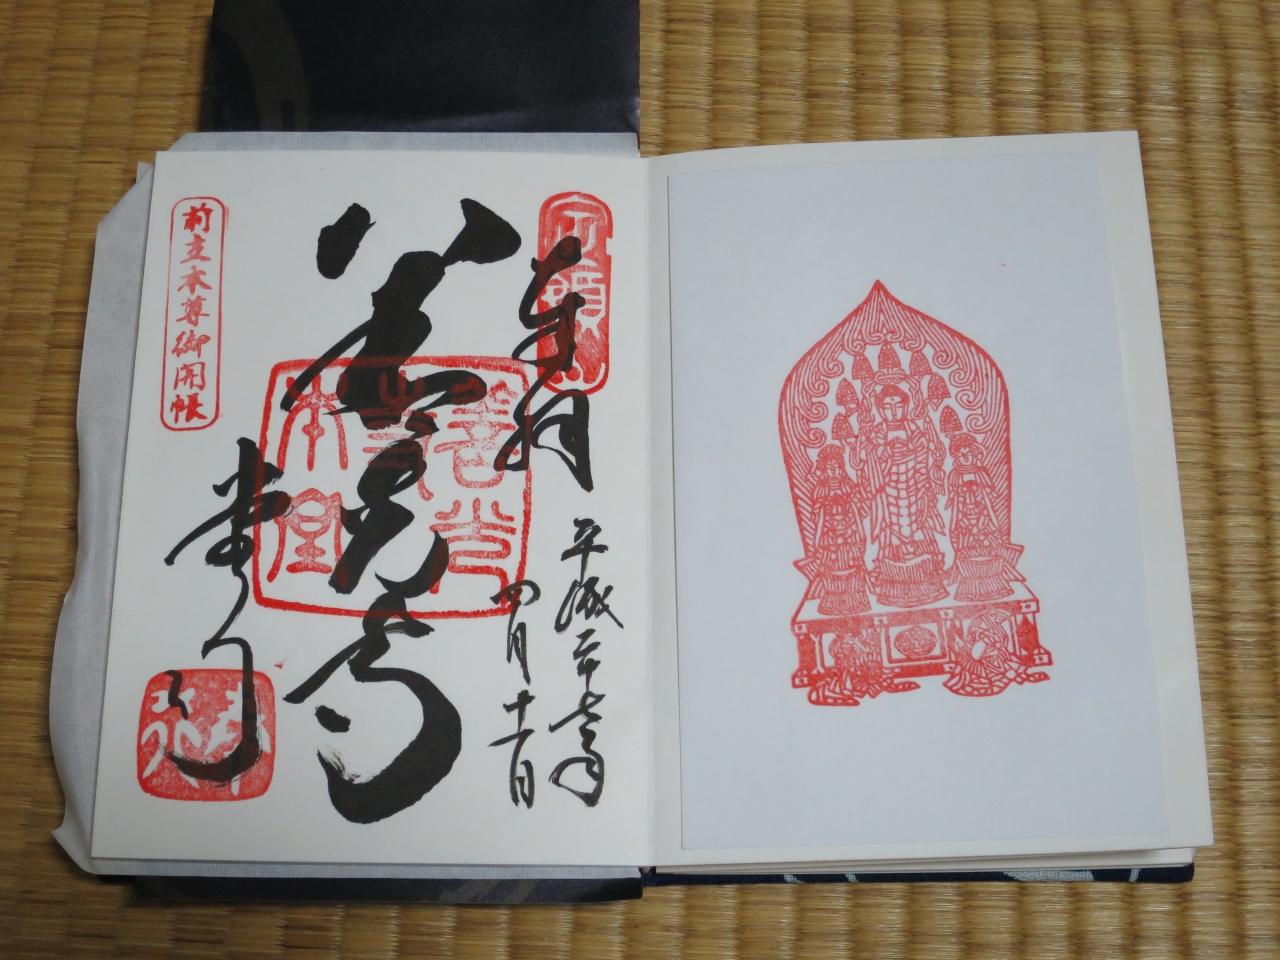 定額山
奉拝
平成二十七年
四月十一日
善光寺
善光寺本堂
前立本尊御開帳